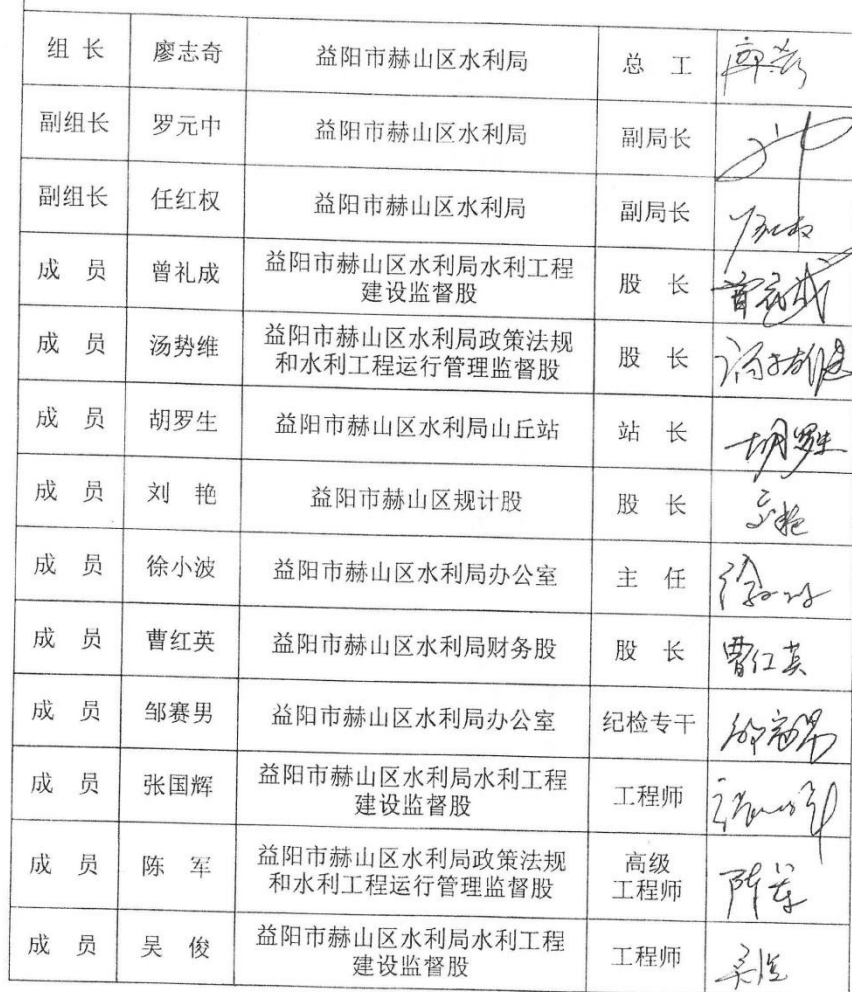 组 长 廖志奇 益阳市赫山区水利局 总 工
副组长 罗元中 益阳市赫山区水利局 副局长
副组长 任红权 益阳市赫山区水利局 副局长
成 员 曾礼成 益阳市赫山区水利局水利工程
建设监督股 股 长
成 员 汤势维 益阳市赫山区水利局政策法规
和水利工程运行管理监督股 股 长
成 员 胡罗生 益阳市赫山区水利局山丘站 站 长 胡罗生
成 员 刘 艳 益阳市赫山区规计股 股 长 刘艳
成 员 徐小波 益阳市赫山区水利局办公室 主 任 徐小波
成 员 曹红英 益阳市赫山区水利局财务股 股 长 曹红英
成 员 邹赛男 益阳市赫山区水利局办公室 纪检专干 邹赛男
成 员 张国辉 益阳市赫山区水利局水利工程
建设监督股 工程师
成 员 陈 军 益阳市赫山区水利局政策法规
和水利工程运行管理监督股 高级
工程师 陈军
成 员 吴 俊 益阳市赫山区水利局水利工程
建设监督股 工程师 吴俊